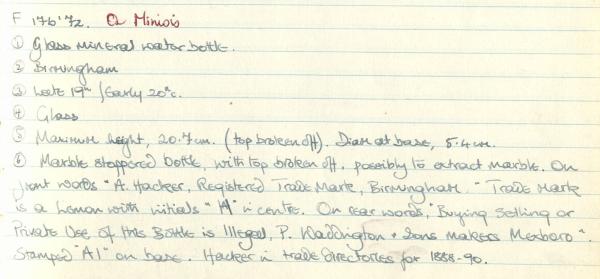 F 176'72. Q Minisis
① Glass mineral water bottle.
② Birmingham
③ Late 19th / Early 20th c.
④ Glass
⑤ Maximum height, 20.7cm. (top broken off). Diam at base, 5.4cm.
⑥ Marble stoppered bottle, with top broken off, possibly to extract marble. On
front words "A. Hacker, Registered Trade Mark, Birmingham." Trade Mark
is a with initials "A" in centre. On rear words, "Buying Selling or
Private Use of this Bottle is Illegal, P. Waddington & Sons Makers Mexboro".
Stamped "A1" on base. Hacker in trade directories for 1888-90.